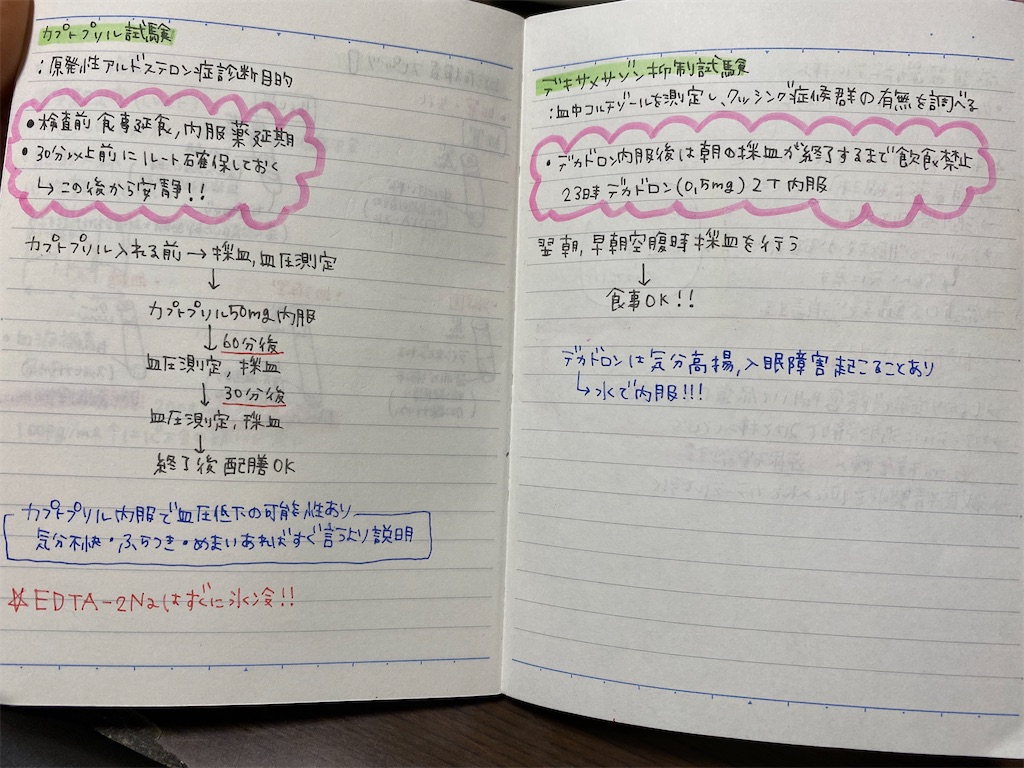 カプトプリル試験
：原発性アルドステロン症診断目的
・検査前 食事延食,内服薬延期
・30分以上前にルート確保しておく
↳この後から安静!!
カプトプリル入れる前→採血,血圧測定
↓
カプトプリル50mg内服
↓ 60分後
血圧測定,採血
↓ 30分後
血圧測定,採血
↓
終了後配膳OK
カプトプリル内服で血圧低下の可能性あり
気分不快・ふらつき・めまいあればすぐ言うよう説明
☆EDTA-2Naはすぐに氷冷!!
デキサメサゾン抑制試験
：血中コルチゾールを測定し,クッシング症候群の有無を調べる
・デカドロン内服後は朝の採血が終了するまで飲食禁止
23時デカドロン(0,5mg)2T内服
翌朝,早朝空腹時採血を行う
↓
食事OK!!
デカドロンは気分高揚,入眠障害起こることあり
↳水で内服!!!